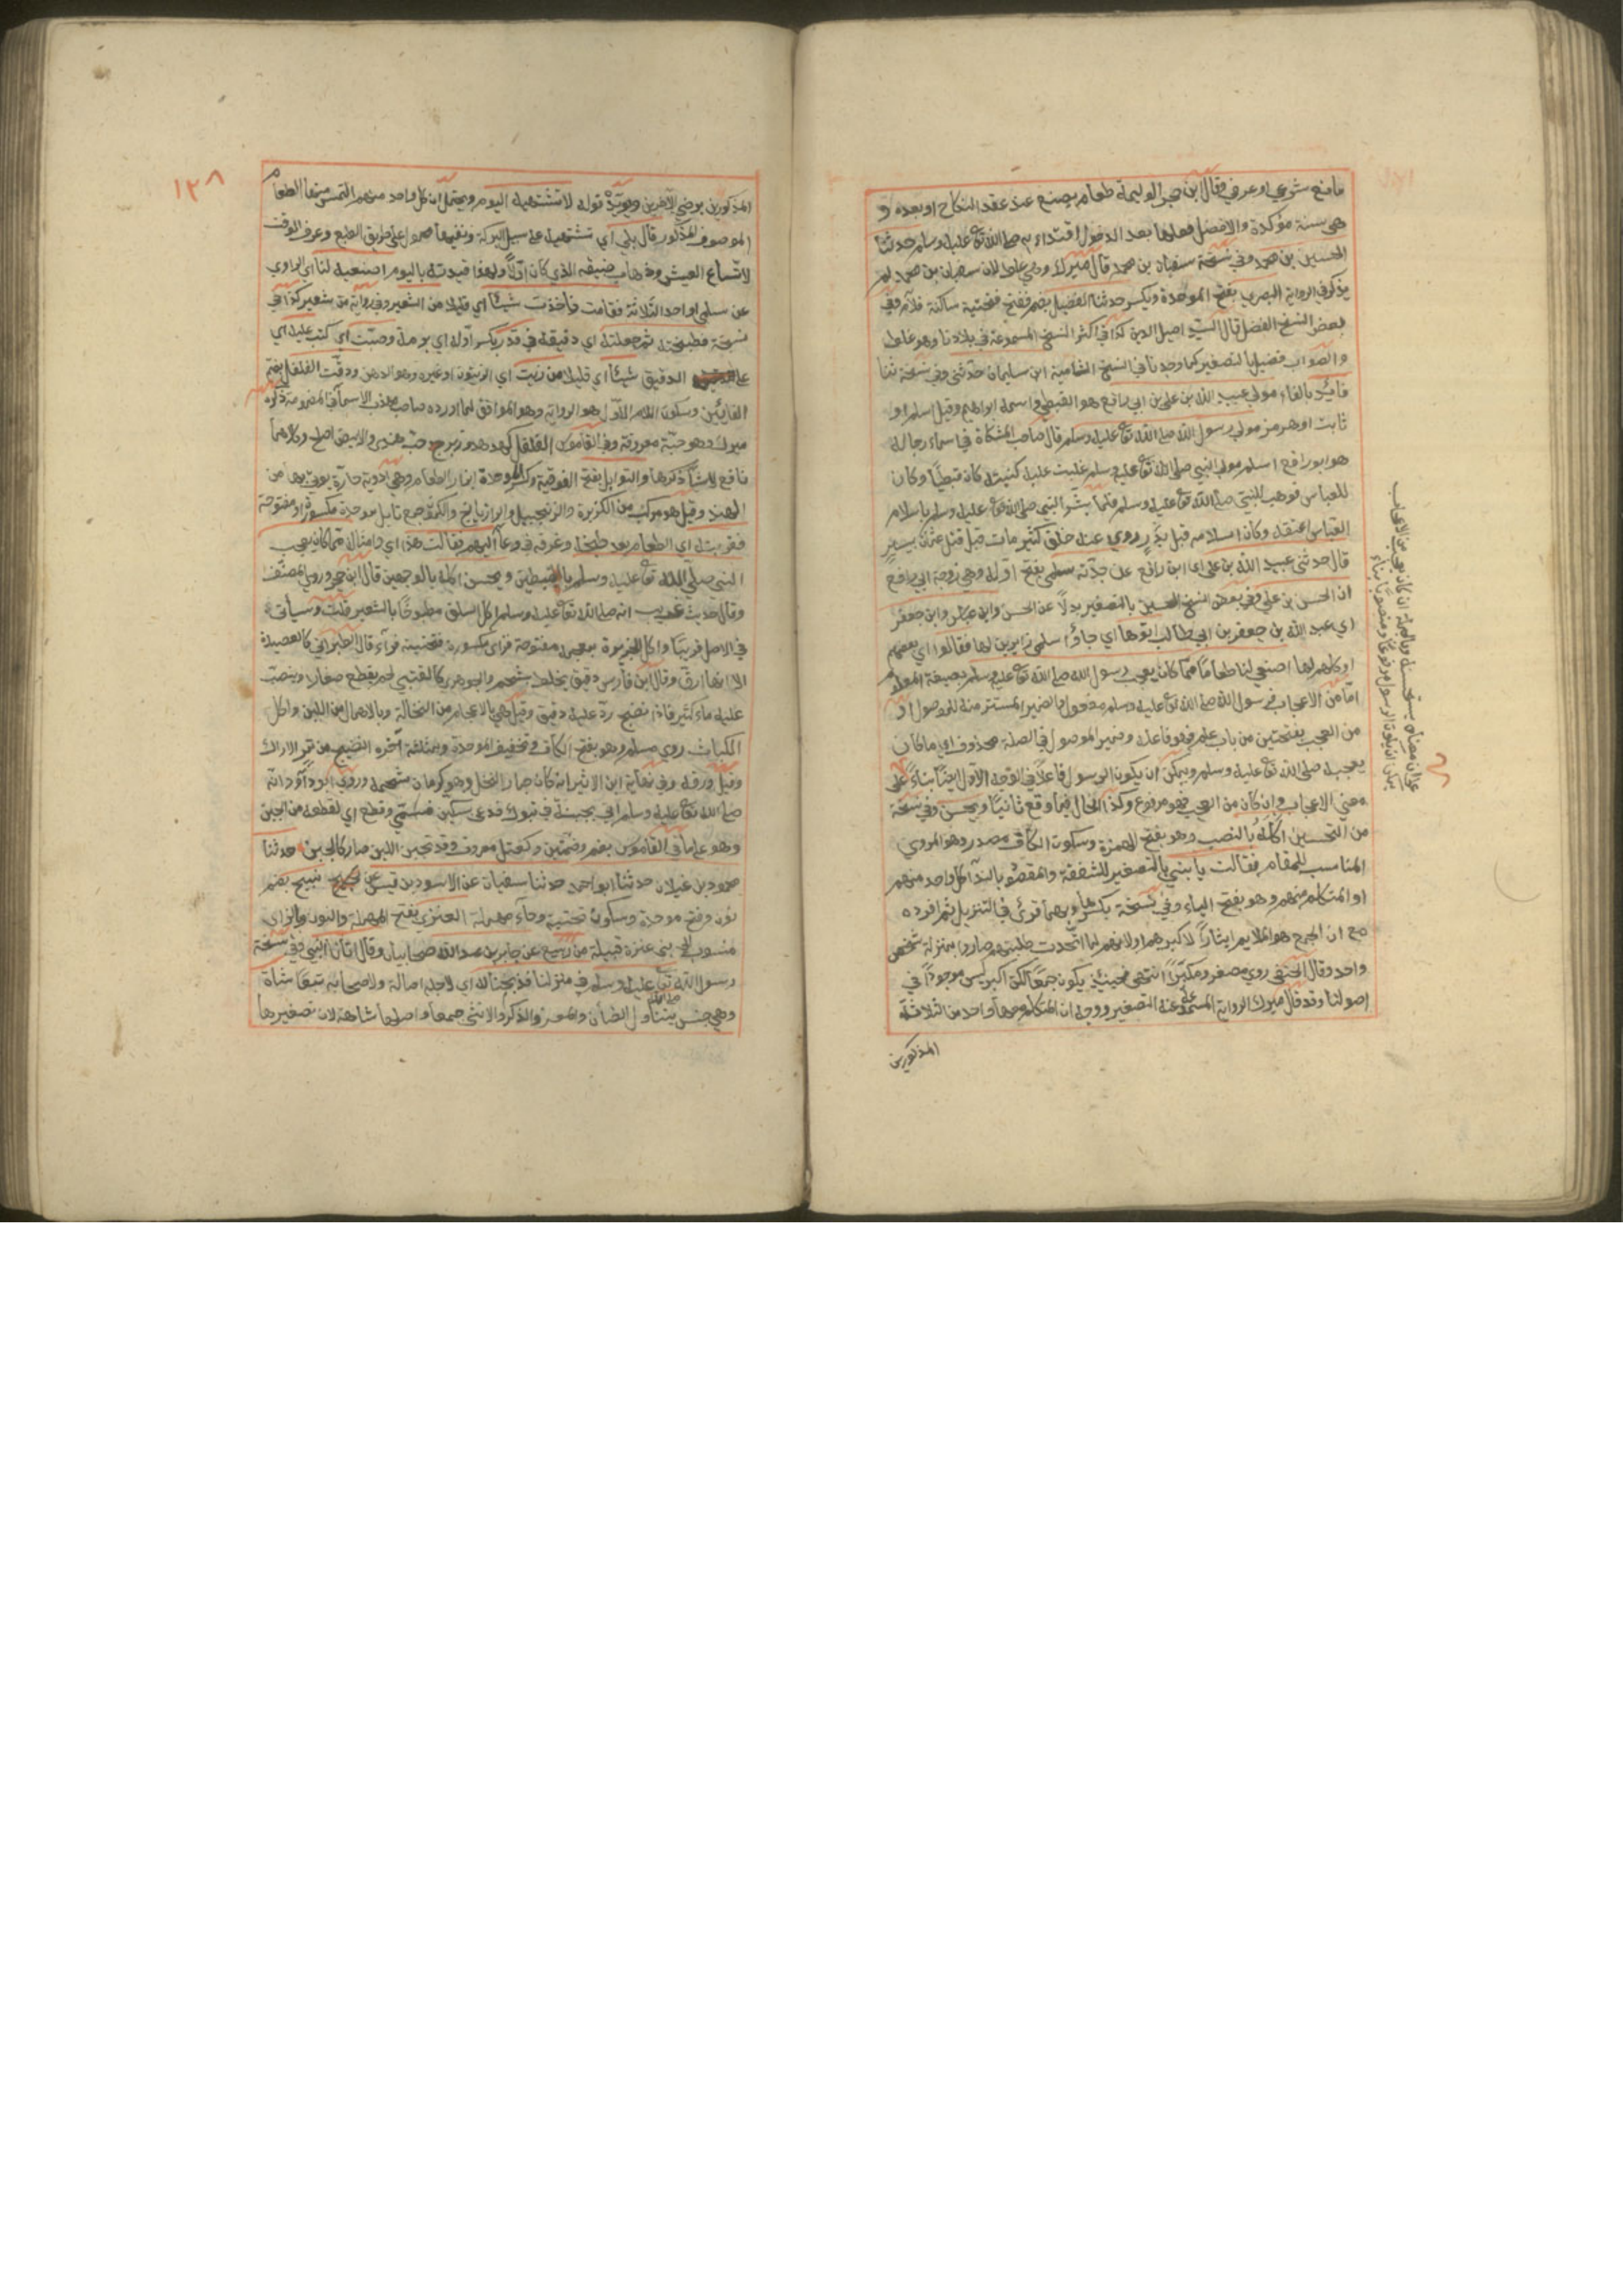 مانع شرعي او عرفي وقال ابن حجر الوليمة طعام يصنع عند عقد النكاح او بعده و
هي سنة مؤكدة والافضل فعلها بعد الدخول اقتداء به صلى الله تعا عليه وسلم حدثنا
الحسين بن محمد وفي نسخة سفيان بن محمد قال ميرك وهي غلط لان سفيان بن محمد لم
يذكر في الرواية البصري بفتح الموحدة ويكسر حدثنا الفضيل بضم ففتح فتحتية ساكنة فلام وفي
بعض النسخ الفضل قال السيد اصيل الدين كذا في اكثر النسخ المسموعة في بلادنا وهو غلط
والصواب فضيل بالتصغير كما وجدنا في النسخ الشامية ابن سليمان حدثني وفي نسخة ثنا
فائد بالفاء مولى عبيد الله بن علي بن ابي رافع هو القبطي واسمه ابراهيم وقيل اسلم او
ثابت او هرمز مولى رسول الله صلى الله تعا عليه وسلم قال صاحب المشكاة في اسماء رجاله
هو ابو رافع اسلم مولى النبي صلى الله تعا عليه وسلم غلبت عليه كنيته كان قبطيا وكان
للعباس فوهبه للنبي صلى الله تعا عليه وسلم فلما بشر النبي صلى الله تعا عليه وسلم باسلام
العباس اعتقه وكان اسلامه قبل بدر روى عنه خلق كثير مات قبل قتل عثمن بيسير
قال حدثني عبيد الله بن علي اي ابن رافع عن جدته سلمى بفتح اوله وهي زوجة ابي رافع
ان الحسن بن علي وفي بعض النسخ الحسين بالتصغير بدلا عن الحسن وابن عباس وابن جعفر
اي عبد الله بن جعفر بن ابي طالب اتوها اي جاؤا سلمى زايرين لها فقالوا اي بعضهم
او كلهم لها اصنعي لنا طعاما مما كان يعجب رسول الله صلى الله تعا عليه وسلم بصيغة المعلوم
اما من الاعجاب فرسول الله صلى الله تعا عليه وسلم مفعول والضمير المستتر منه للموصول او
من العجب بفتحتين من باب علم فهو فاعله وضمير الموصول في الصلة محذوف اي ما كان
يعجبه صلى الله تعا عليه وسلم ويمكن ان يكون الرسول فاعلا في الوجه الاول ايضا بناء على
معنى الاعجاب وان كان من العجب فهو مرفوع وكذا الحال فيما وقع ثانيا ويحسن وفي نسخة
من التحسين اكله بالنصب وهو بفتح الهمزة وسكون الكاف مصدر وهو المروي
المناسب للمقام فقالت يا بني بالتصغير للشفقة والمقصود بالندا كل واحد منهم
او المتكلم منهم وهو بفتح الياء وفي نسخة بكسرها وبهما قرئ في التنزيل ثم افرده
مع ان الجمع هو الملايم ايثارا لاكبرهم او لانهم لما اتحدت طلبتهم صاروا بمنزلة شخص
واحد وقال الحنفي روي مصغرا ومكبرا انتهى فحينئذ يكون جمعا لكن اكبر ليس موجودا في
اصولنا وقد قال ميرك الرواية المسموعة عنه التصغير ووجه ان المتكلم معها واحد من الثلاثة
المذكورين
على ان معناه يستحسنه وبالجملة ان كان يعجب من الاعجاب
يمكن ان يكون الرسول مرفوعا ومنصوبا بناء
١٢٨
المذكورين برضى الآخرين ويؤيده قوله لا تشتهيه اليوم ويحتمل ان كل واحد منهم التمس منها الطعام
الموصوف المذكور قال بلى اي نشتهيه على سبيل البركة ونفيها محمول على طريق الطبع وعرف الوقت
لاتساع العيش وذهاب ضيقه الذي كان اولا ولهذا قيدته باليوم اصنعيه لنا اي الراوي
عن سلمى او احد الثلاثة فقامت فاخذت شيئا اي قليلا من الشعير وفي رواية من شعير كذا في
نسخة فطبخته ثم جعلته اي دقيقه في قدر بكسر اوله اي برمة وصبت اي كبت عليه اي
على الدقيق شيئا اي قليلا من زيت اي الزيتون او غيره وهو الدهن ودقت الفلفل بضم
الفائين وسكون اللام الاول هو الرواية وهو الموافق لما اورده صاحب مهذب الاسما في المضمومة ذكره
ميرك وهو حبة معروفة وفي القاموس الفلفل كهدهد وزبرج حب هندي والابيض اصلح وكلاهما
نافع لاشيا ذكرها والتوابل بفتح الفوقية وكسر الموحدة ابزار الطعام وهي ادوية حارة يؤتى بها من
الهند وقيل هو مركب من الكزبرة والزنجبيل والرازيانج والكمون جمع تابل موحدة مكسورة او مفتوحة
فقربته اي الطعام بعد طبخه وغرفه في وعا اليهم فقالت هذا اي وامثاله مما كان يعجب
النبي صلى الله تعا عليه وسلم بالضبطين ويحسن اكله بالوجهين قال ابن حجر وروى المصنف
وقال حديث غريب انه صلى الله تعا عليه وسلم اكل السلق مطبوخا بالشعير قلت وسيأتي
في الاصل قريبا واكل الخزيرة بمعجمة مفتوحة فزاي مكسورة فتحتية فراء قال الطبراني كالعصيدة
الا انها ارق وقال ابن فارس دقيق يخلط بشحم والجوهري كالقتبي لحم يقطع صغارا ويصب
عليه ماء كثير فاذا نضج ذر عليه دقيق وقيل هي بالاعجام من النخالة وبالاهمال من اللبن واكل
الكباث روي مسلم وهو بفتح الكاف وتخفيف الموحدة وبمثلثة آخره النضيج من ثمر الاراك
وقيل ورقه وفي نهاية ابن الاثير انه كان جمار النخل وهو كرمان شحمه وروي ابو داود انه
صلى الله تعا عليه وسلم اتي بجبنة في تبوك فدعى بسكين فسمى وقطع اي لقطعة من الجبن
وهو على ما في القاموس بضم وضمتين وكعتل معروف وقد تجبن اللبن صار كالجبن حدثنا
محمود بن غيلان حدثنا ابو احمد حدثنا سفيان عن الاسود بن قيس عن نبيح بضم
نون وفتح موحدة وسكون تحتية وحاء مهملة العنزي بفتح المهملة والنون والزاي
منسوب الى بني عنزة قبيلة من ربيع عن جابر بن عبد الله صحابيان وقال اتانا النبي وفي نسخة
رسول الله تعا عليه وسلم في منزلنا فذبحنا له اي لاجله اصالة ولاصحابه تبعا شاة
وهي جنس يتناول الضأن والمعز والذكر والانثى جمعا واصلها شاهة لان تصغيرها